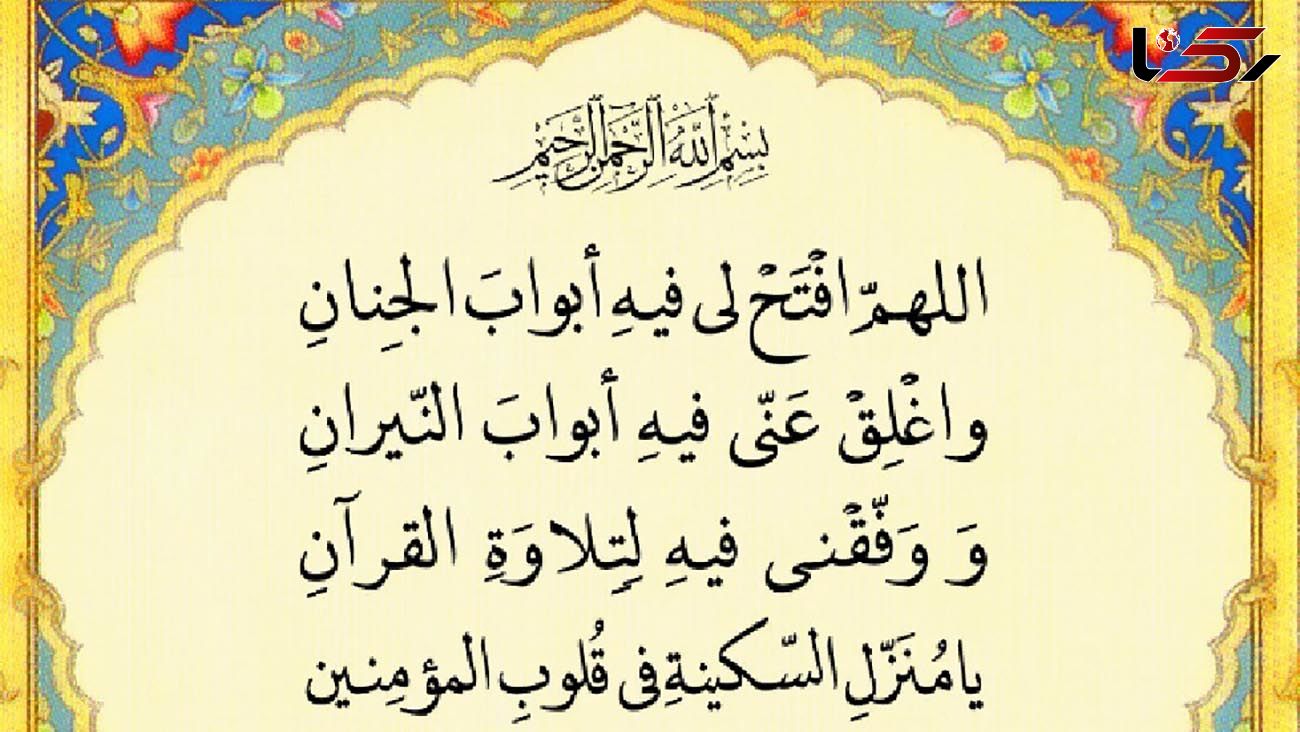 رکنا
بِسْمِ اللَّهِ الرَّحْمَنِ الرَّحِيمِ
اللهمّ افْتَحْ لی فیهِ أبوابَ الجِنانِ
واغْلِقْ عَنّی فیهِ أبوابَ النّیرانِ
وَ وَفّقْنی فیهِ لِتِلاوَةِ القرآنِ
یا مُنَزّلِ السّکینةِ فی قُلوبِ المؤمِنین